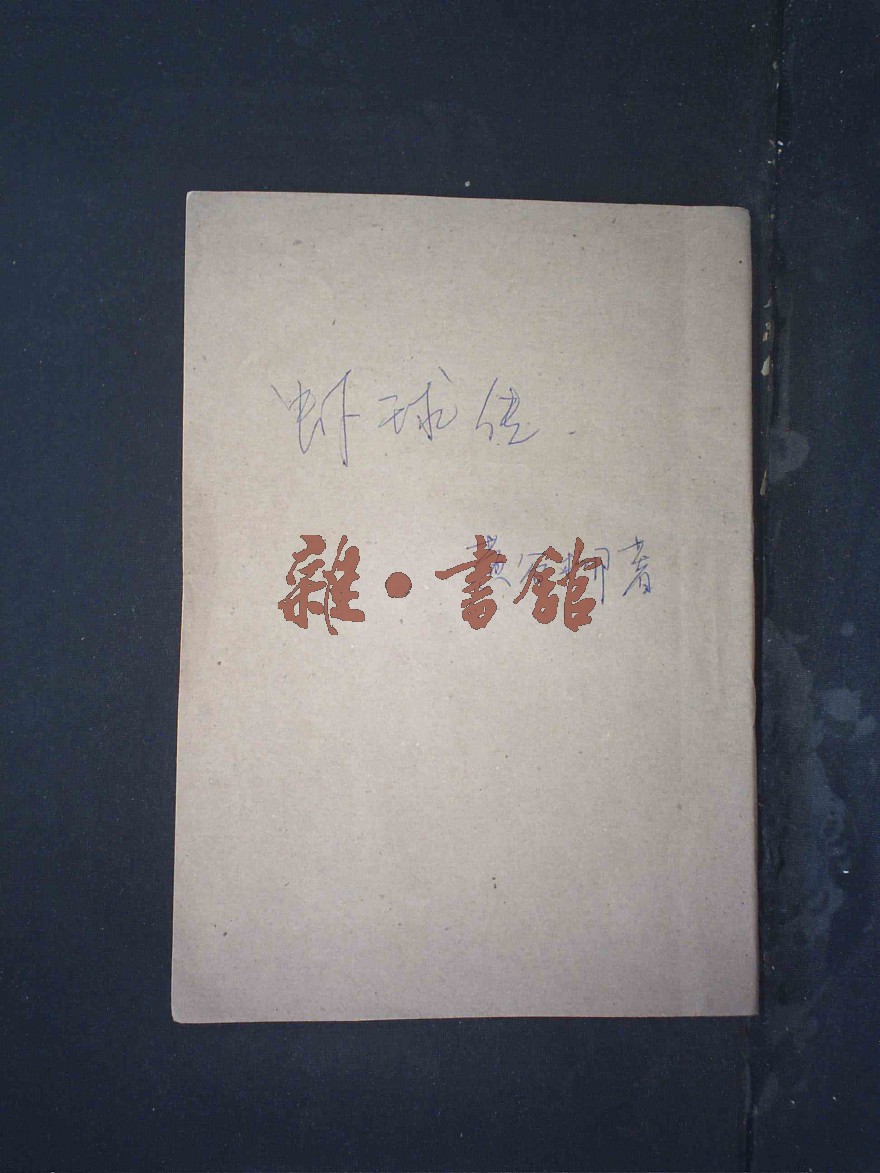 虾球传
黄谷柳著
雜·書館